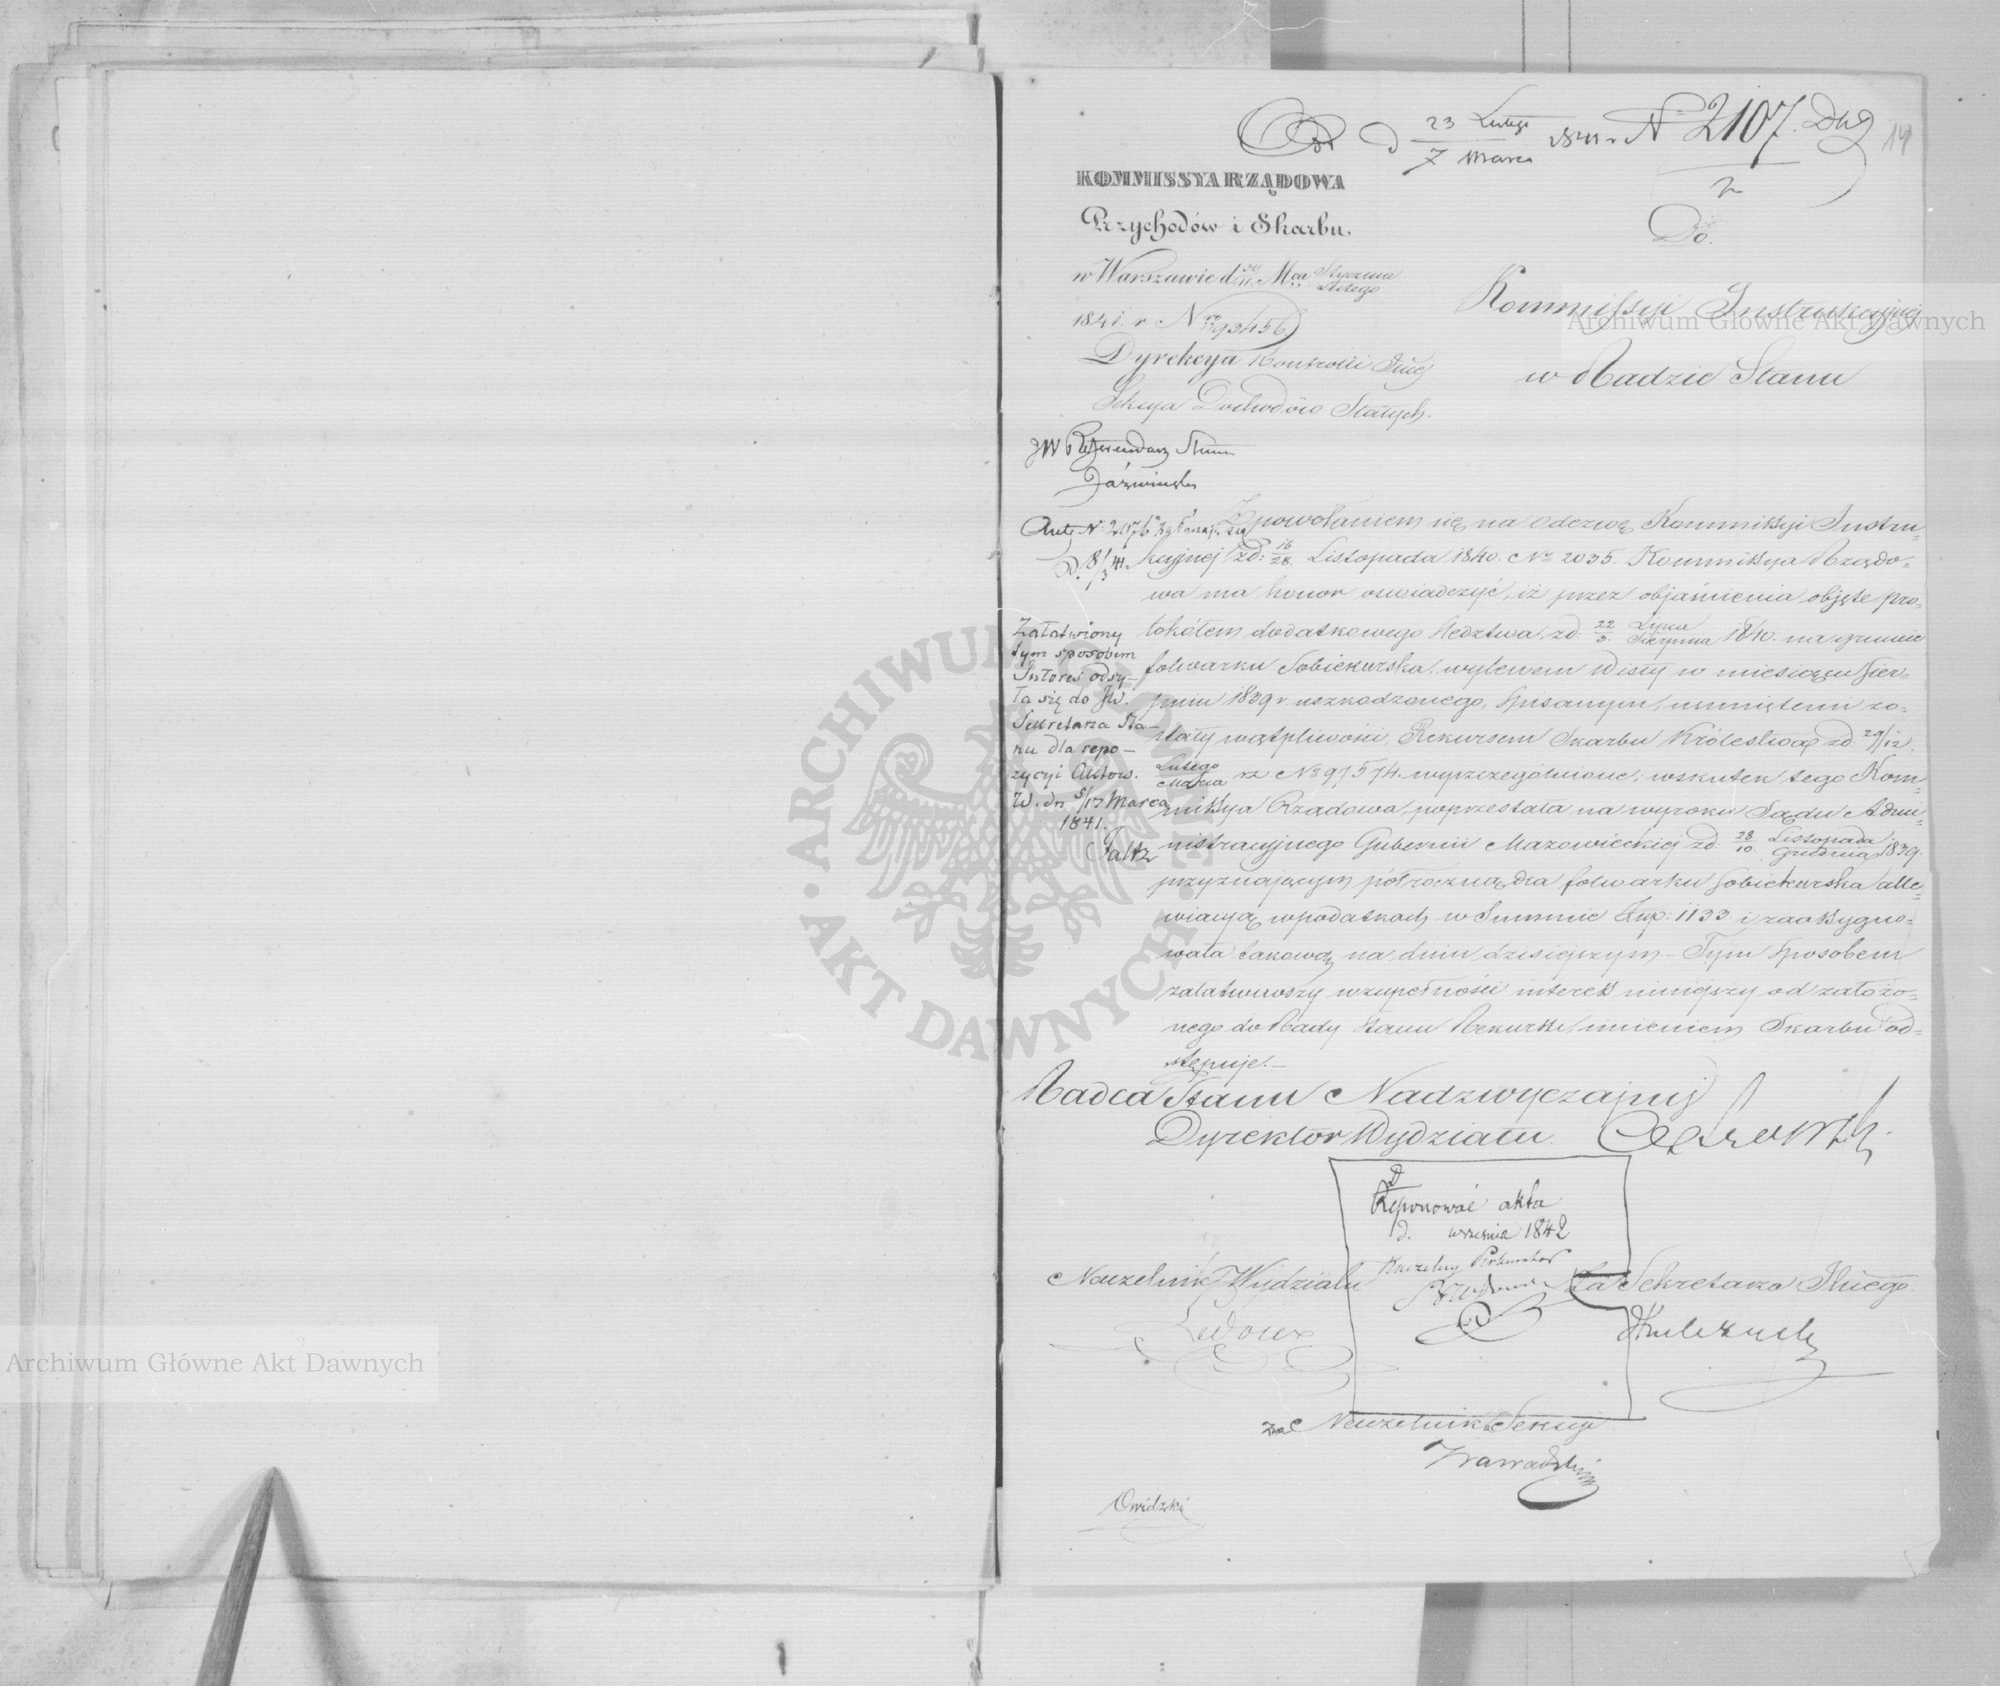 d 23 Lutego 1841 r N 2107.
7 Marca
14
KOMMISSYA RZĄDOWA
Przychodów i Skarbu.
w Warszawie d 30/11 Mca Stycznia/Lutego
1841. r N 93456
Dyrekcya Kontrolli
Sekcya Dochodów Stałych.
Do.
Kommissyi Instrukcyjnej
w Radzie Stanu
JW Referendarz Stanu
Jaźwiński
Z powołaniem się na odezwę Kommissyi Instru-
kcyjnej zd: 16/28 Listopada 1840. No 2035. Kommissya Rządo-
wa ma honor oświadczyć, iż przez objaśnienia objęte pro-
tokółem dodatkowego śledztwa, zd: 22 Lipca/3 Sierpnia 1840. na gruncie
folwarku Sobiekurska, wylewem Wisły w miesiącu Sier-
pniu 1839 r. uszkodzonego, spisanym, usunięte zo-
stały wątpliwości, Rekursem Skarbu Królestwa zd: 29/12
Lutego/Marca No 97574. wyszczególnione; wskutek tego Kom-
missya Rządowa, poprzestała na wyroku Sądu Admi-
nistracyjnego Gubernii Mazowieckiej zd: 28 Listopada/10 Grudnia 1839.
przyznającym półroczną dla folwarku Sobiekurska alle-
wiacyą w podatkach w Summie Rup: 1133 i zaassygno-
wała takową na dniu dzisiejszym - Tym sposobem
załatwiwszy w zupełności interes niniejszy od założo-
nego do Rady Stanu Rekursu, imieniem Skarbu od-
stępuje.-
Załatwiony
tym sposobem
Interes odsy-
ła się do JW.
Sekretarza Sta-
nu dla repo-
zycyi Aktów.
W. dn 5/17 Marca
1841.
Faltz
Radca Stanu Nadzwyczajny
Dyrektor Wydziału
Reponować akta
d. września 1842
Naczelny Prokurator
Naczelnik Wydziału
Ledoux
Za Sekretarza
za Naczelnika Sekcyi
Zawadzki
Owidzki
Archiwum Główne Akt Dawnych
Archiwum Główne Akt Dawnych
ARCHIWUM GŁÓWNE • AKT DAWNYCH •